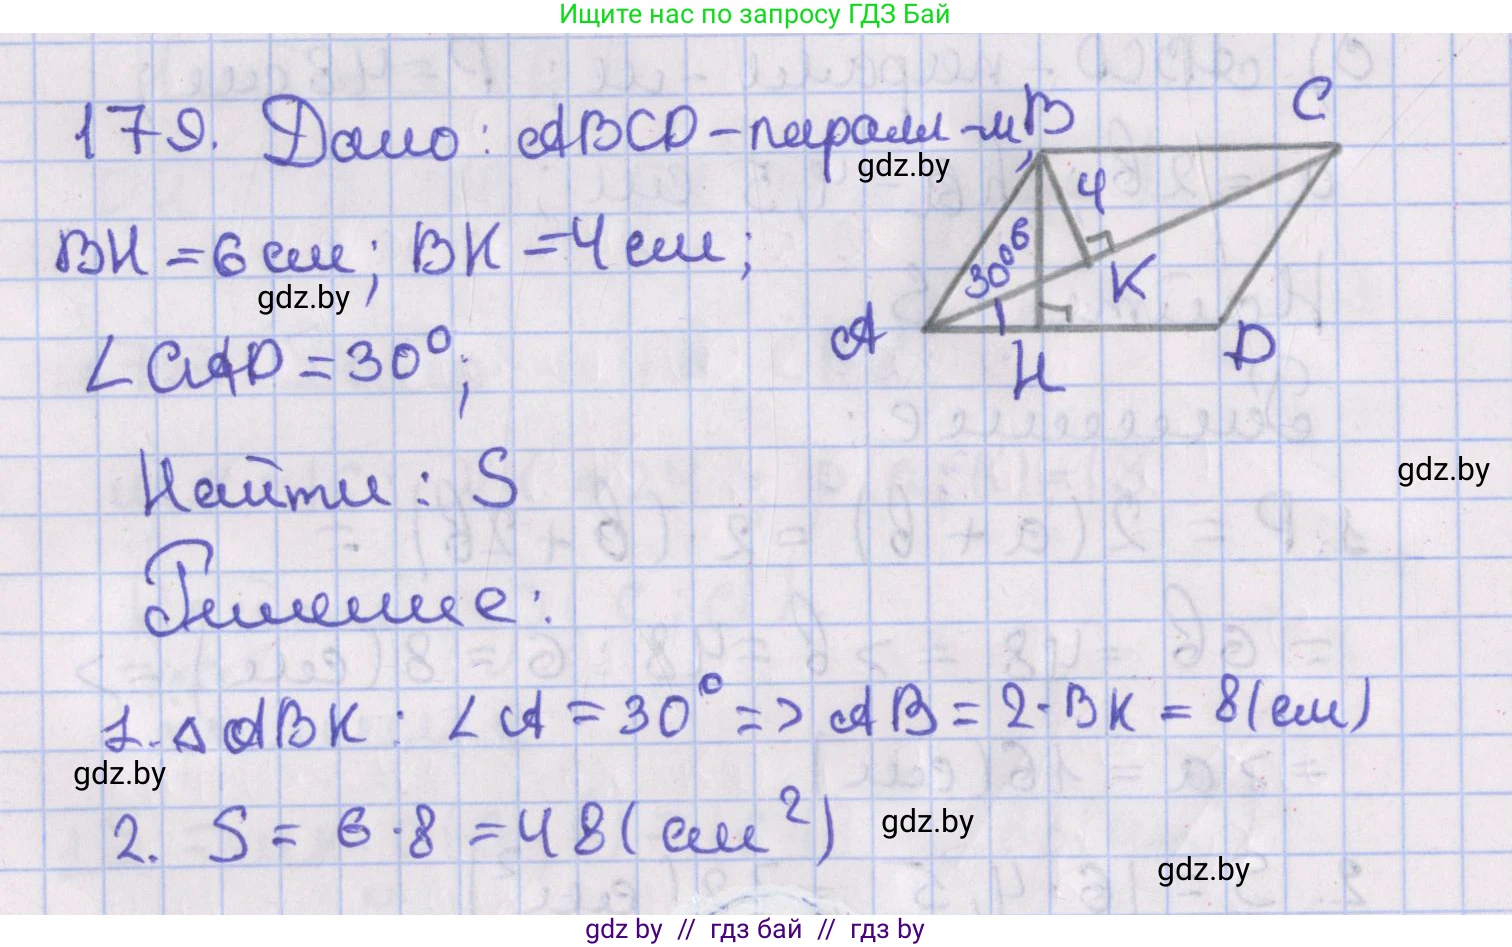 Ищите нас по запросу ГДЗ Бай
179. Дано: ABCD-паралл-м,
BH = 6 см; BK = 4 см;
∠CAD = 30°;
Найти: S
Решение:
1. △ ABK: ∠A = 30° => AB = 2·BK = 8(см)
2. S = 6·8 = 48(см²)
B
C
4
6
30°
K
A
H
D
gdz.by
gdz.by
gdz.by
gdz.by
gdz.by
gdz.by
gdz by // гдз бай // гдз by